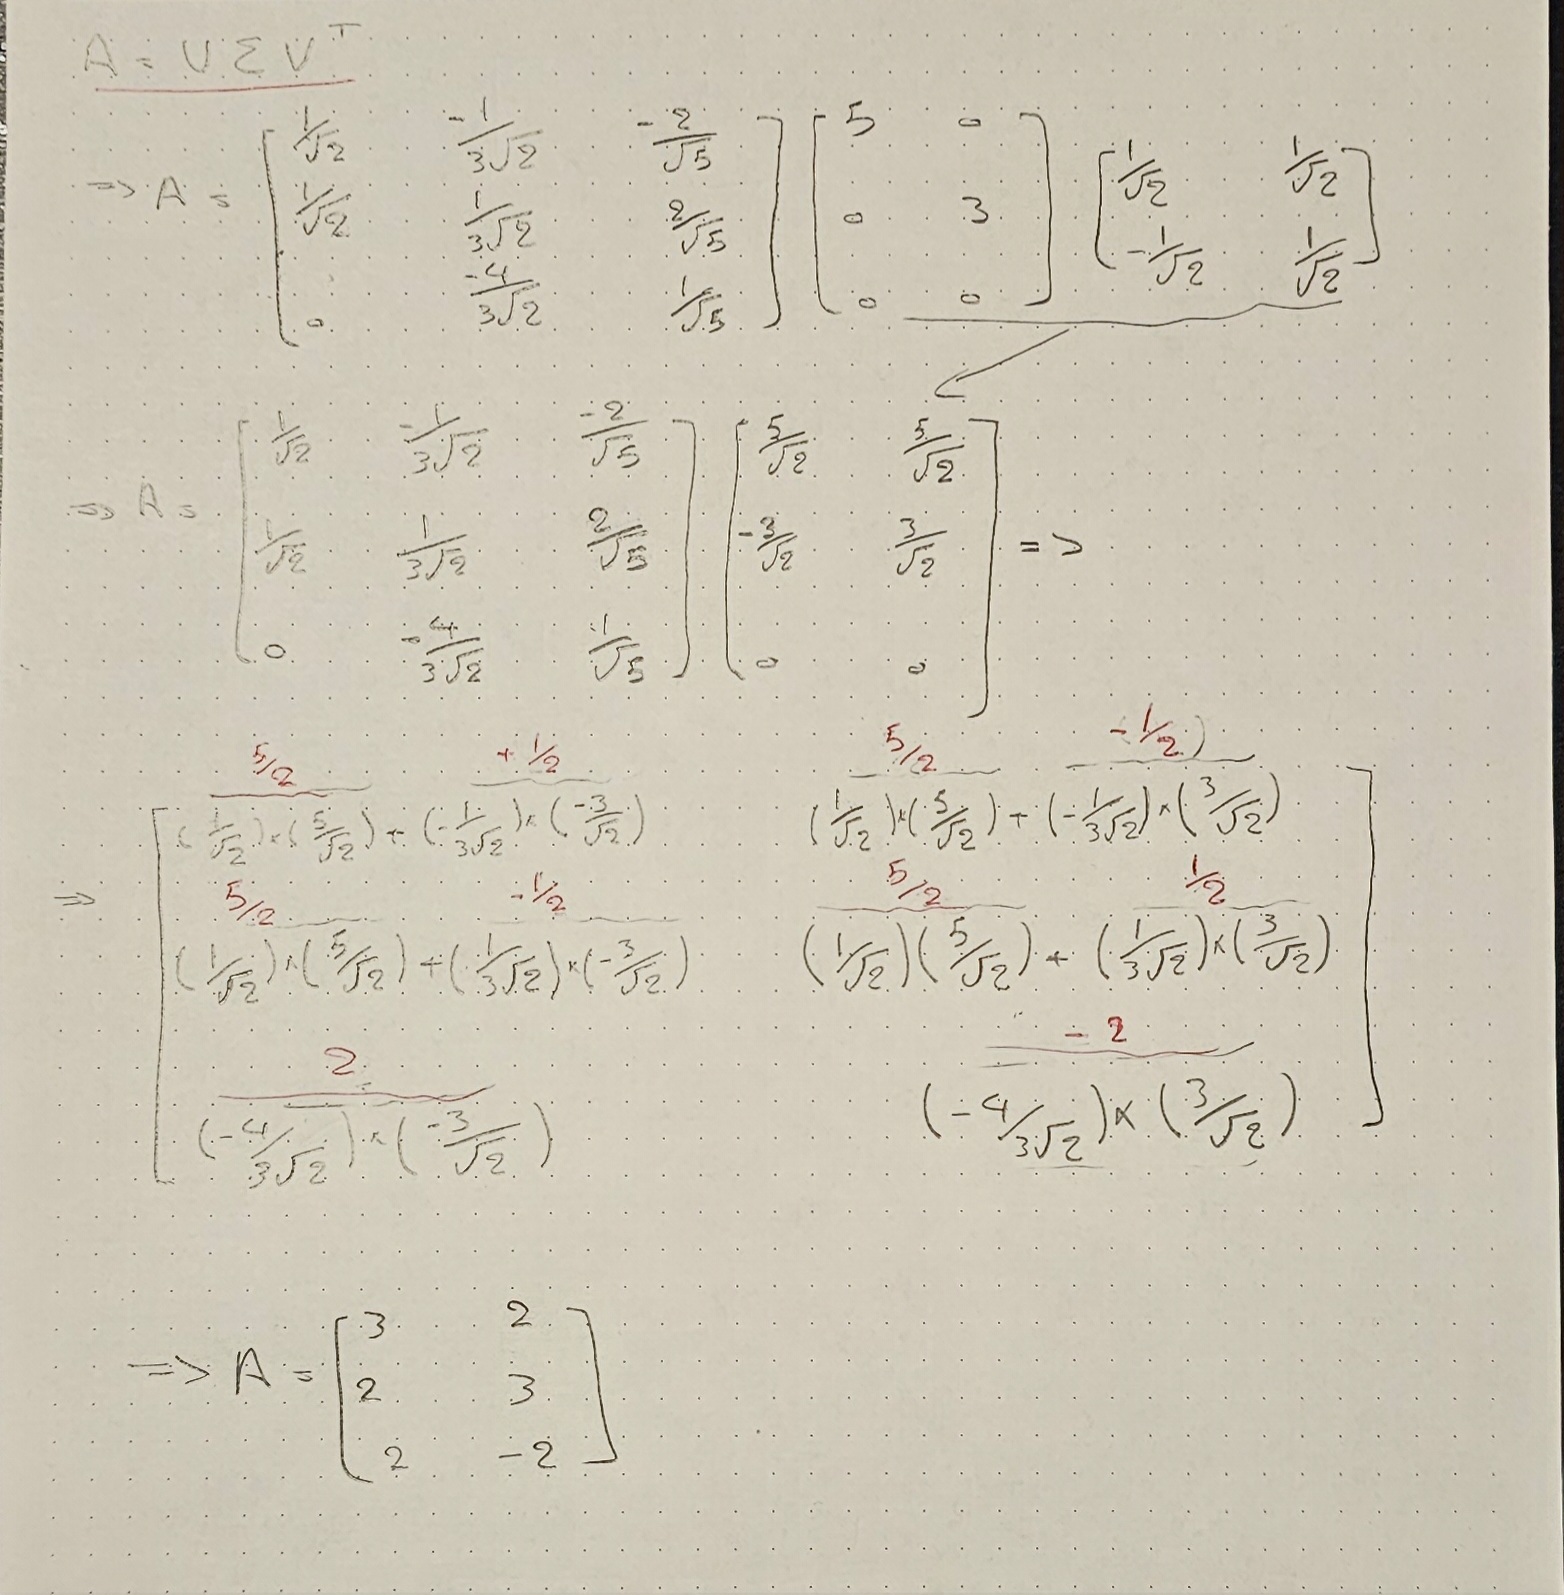 A = U Σ V^T
=> A = [ 1/√2  -1/3√2  -2/√5 ; 1/√2  1/3√2  2/√5 ; 0  -4/3√2  1/√5 ] [ 5  0 ; 0  3 ; 0  0 ] [ 1/√2  1/√2 ; -1/√2  1/√2 ]
=> A = [ 1/√2  -1/3√2  -2/√5 ; 1/√2  1/3√2  2/√5 ; 0  -4/3√2  1/√5 ] [ 5/√2  5/√2 ; -3/√2  3/√2 ; 0  0 ] =>
5/2  + 1/2  5/2  (-1/2)
(1/√2)×(5/√2) + (-1/3√2)×(-3/√2)  (1/√2)×(5/√2) + (-1/3√2)×(3/√2)
=> 5/2  -1/2  5/2  1/2
(1/√2)×(5/√2) + (1/3√2)×(-3/√2)  (1/√2)(5/√2) + (1/3√2)×(3/√2)
2  -2
(-4/3√2)×(-3/√2)  (-4/3√2)×(3/√2)
=> A = [ 3  2 ; 2  3 ; 2  -2 ]